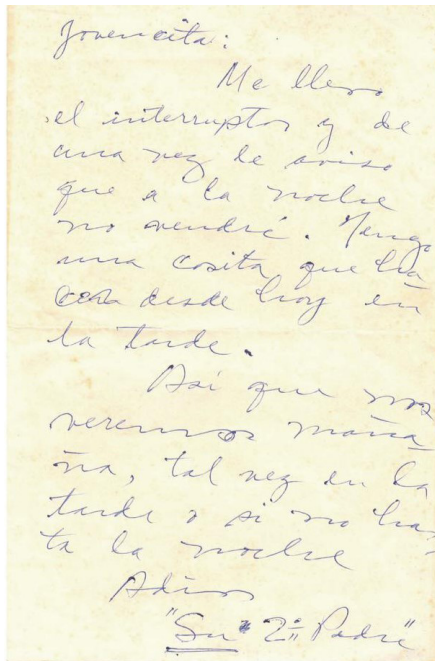 Jovencita:
Me llevo
el interruptor y de
una vez le aviso
que a la noche
no vendré. Tengo
una cosita que ha-
cer desde hoy en
la tarde.
Así que nos
veremos maña-
na, tal vez en la
tarde o si no has-
ta la noche
Adios
"Su" 2º Padre"